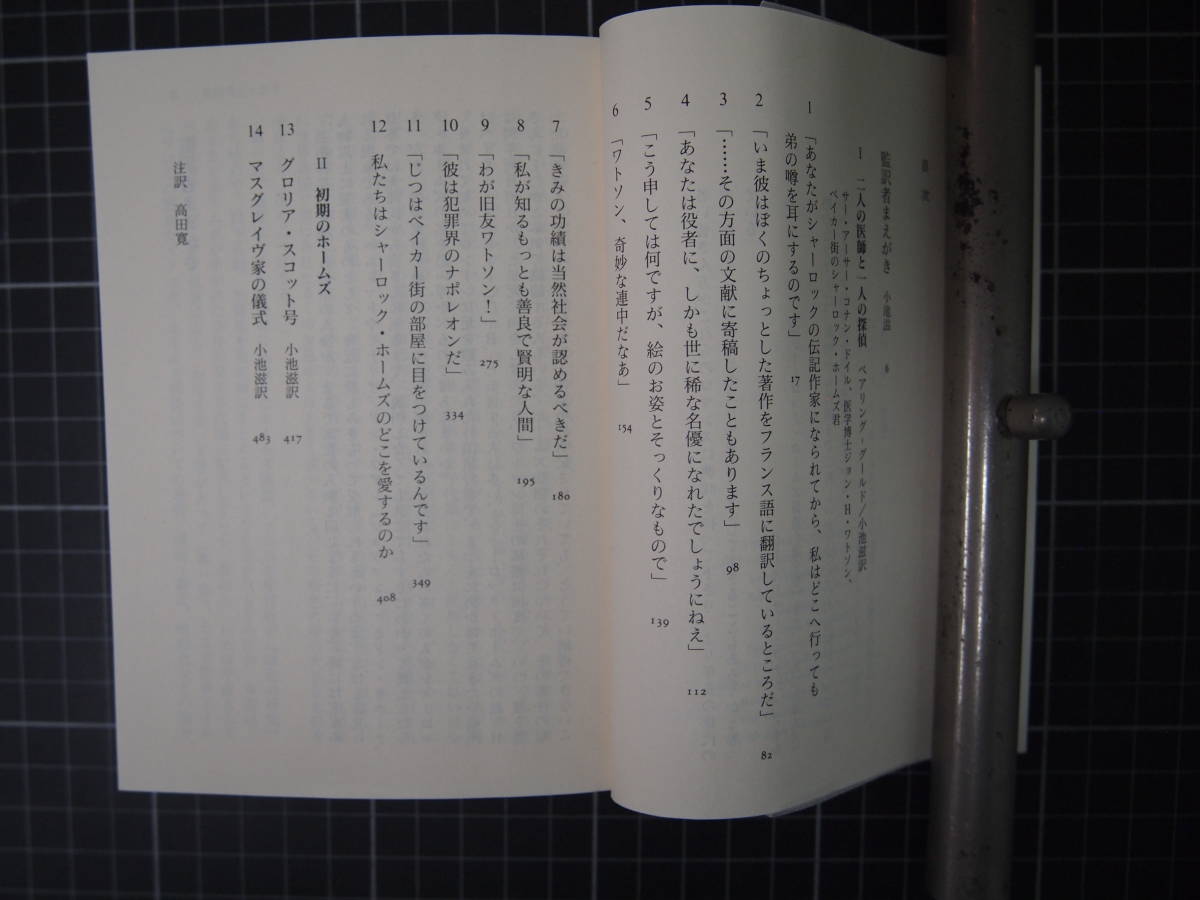 目次
監訳者まえがき 小池滋 6
I 二人の医師と一人の探偵 ベアリング=グールド/小池滋訳
サー・アーサー・コナン・ドイル、医学博士ジョン・H・ワトソン、
ベイカー街のシャーロック・ホームズ君
1 「あなたがシャーロックの伝記作家になられてから、私はどこへ行っても
弟の噂を耳にするのです」 17
2 「いま彼はぼくのちょっとした著作をフランス語に翻訳しているところだ」 82
3 「……その方面の文献に寄稿したこともあります」 98
4 「あなたは役者に、しかも世に稀な名優になれたでしょうにねえ」 112
5 「こう申しては何ですが、絵のお姿とそっくりなもので」 139
6 「ワトソン、奇妙な連中だなあ」 154
7 「きみの功績は当然社会が認めるべきだ」 180
8 「私が知るもっとも善良で賢明な人間」 195
9 「わが旧友ワトソン！」 275
10 「彼は犯罪界のナポレオンだ」 334
11 「じつはベイカー街の部屋に目をつけているんです」 349
12 私たちはシャーロック・ホームズのどこを愛するのか 408
II 初期のホームズ
13 グロリア・スコット号 小池滋訳 417
14 マスグレイヴ家の儀式 小池滋訳 483
注訳 高田寛